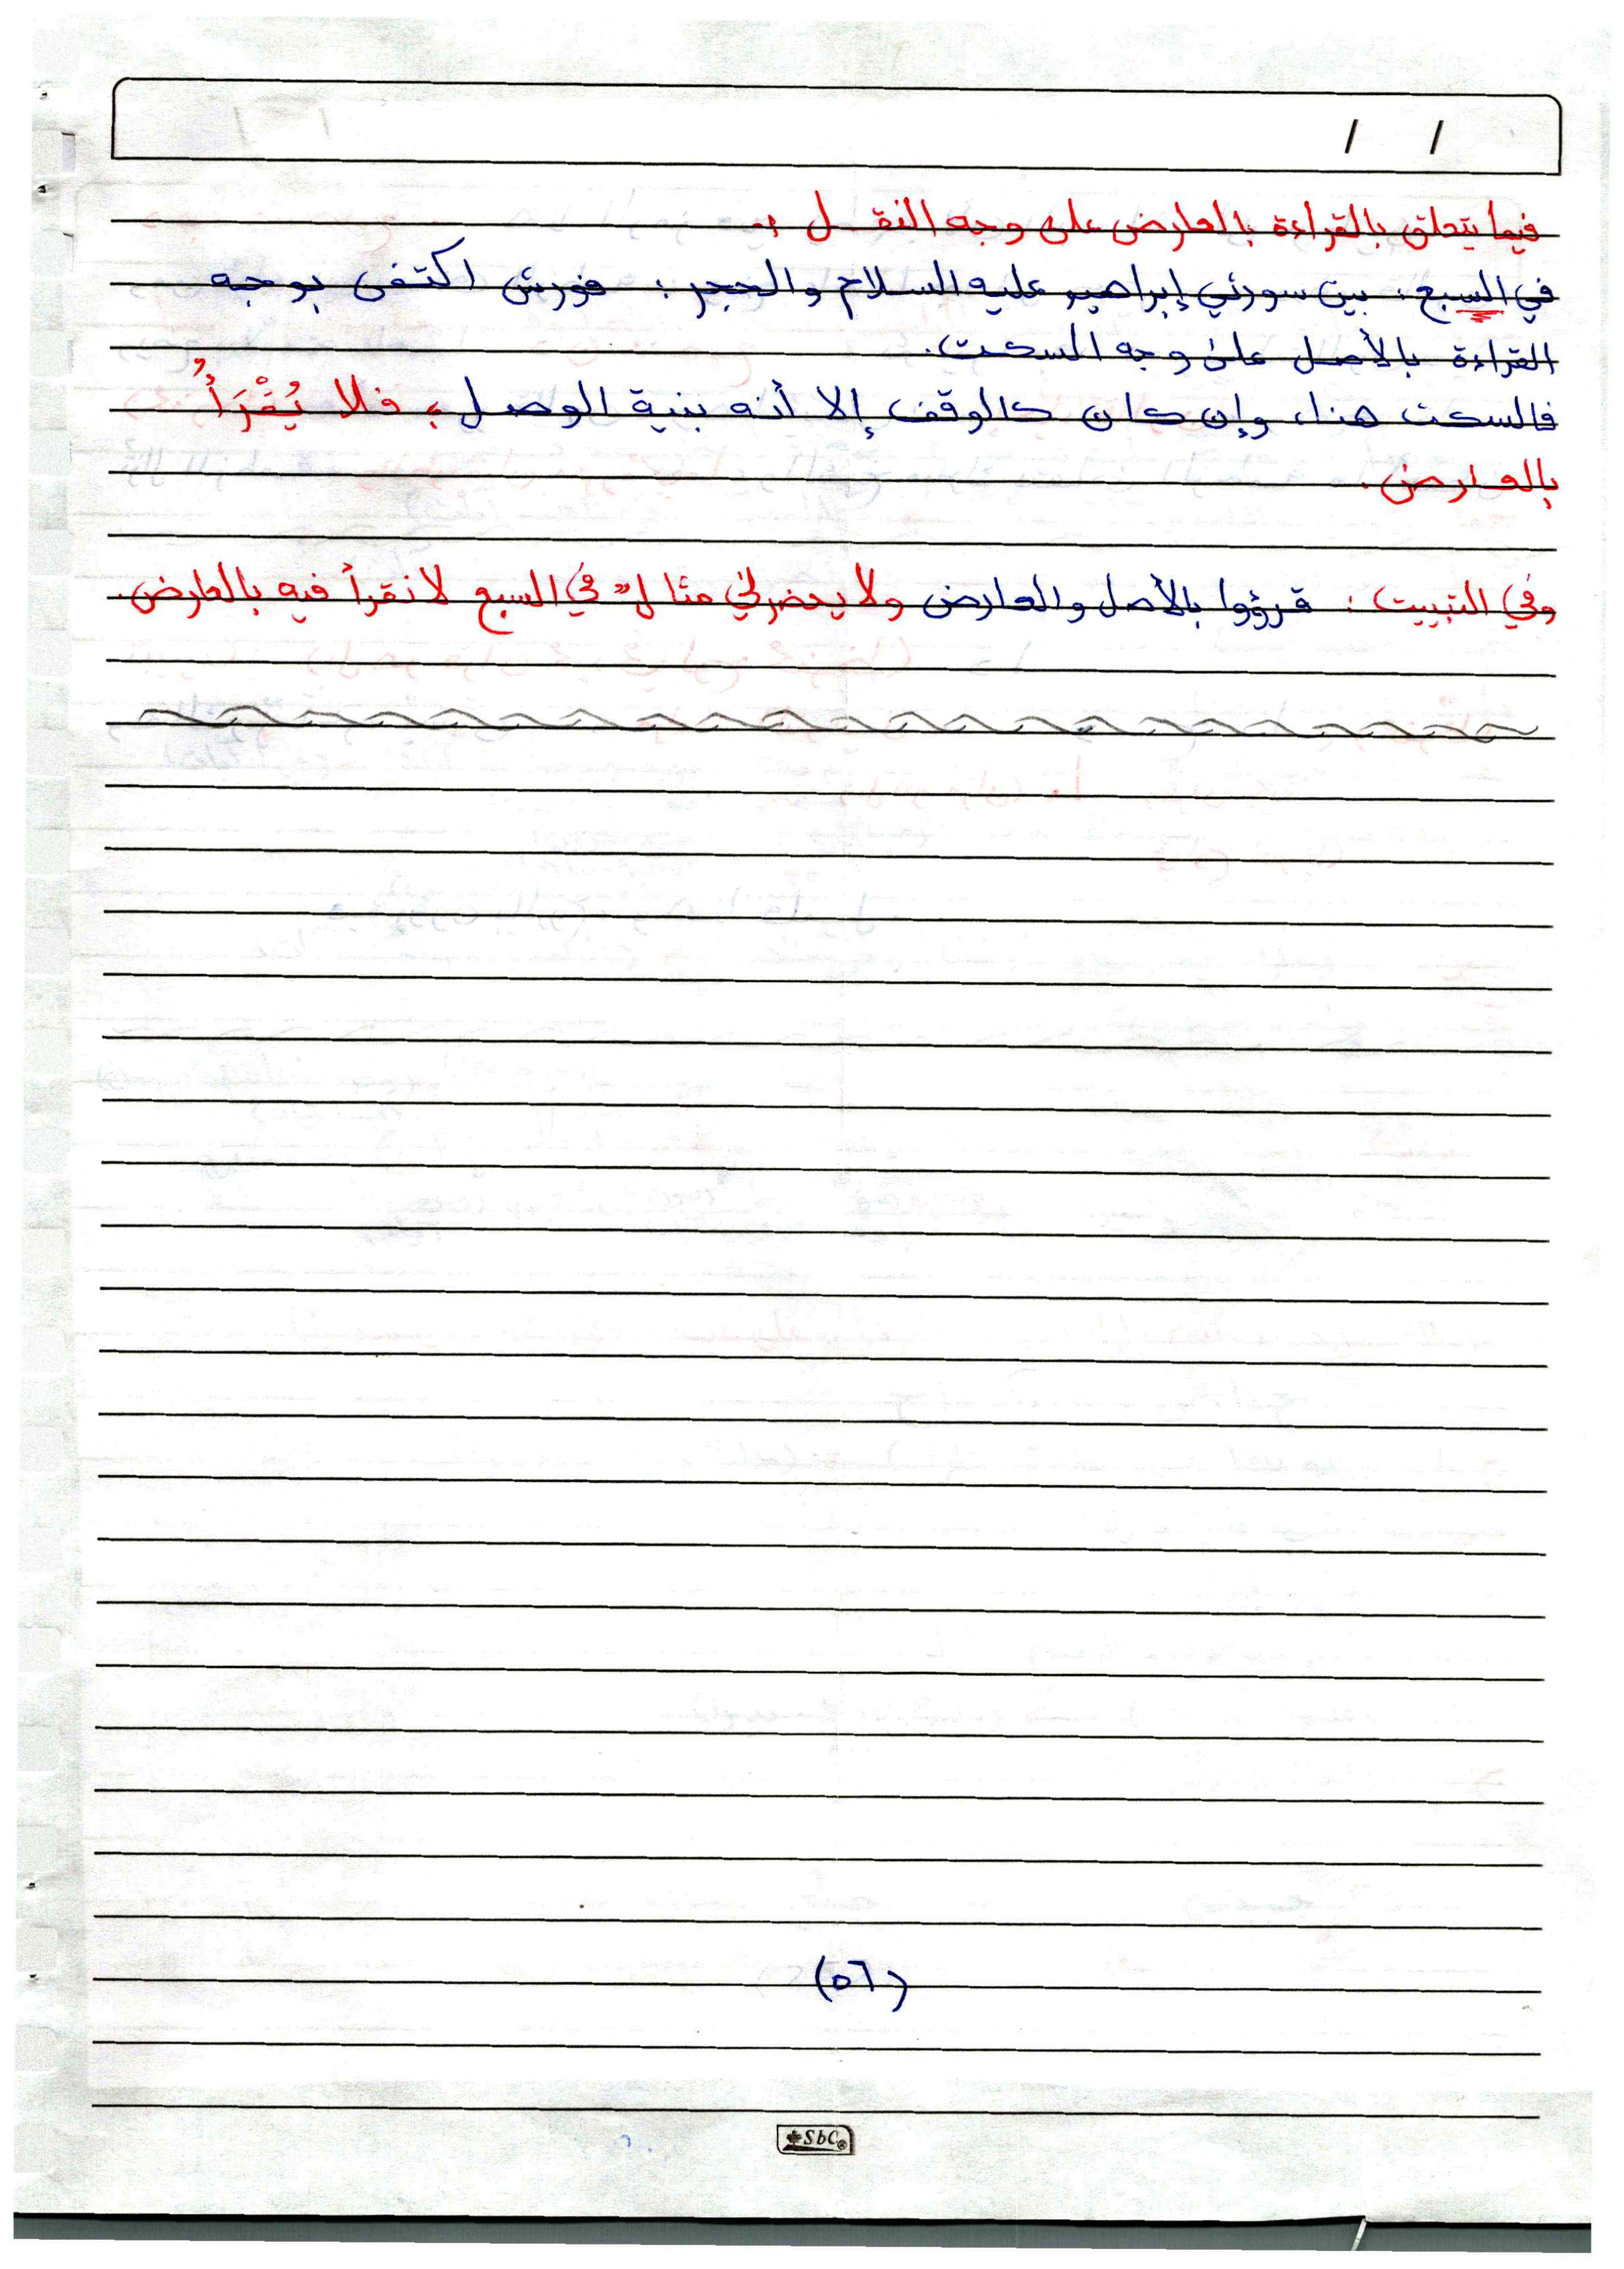 / /
فيما يتعلق بالقراءة بالعارض على وجه النقـــل :-
في السبع : بين سورتي إبراهيم عليه السلام والحجر : فورش اكتفى بوجه
القراءة بالأصل على وجه السكت.
فالسكت هنا، وإن كان كالوقف إلا أنه بنية الوصل ؛ فلا يُقْرَأُ
بالعارض.
وفي التبييت : قرؤوا بالأصل والعارض ولا يحضرني مثالٌ في السبع لا نقرأ فيه بالعارض.
(٥٦)
SbC